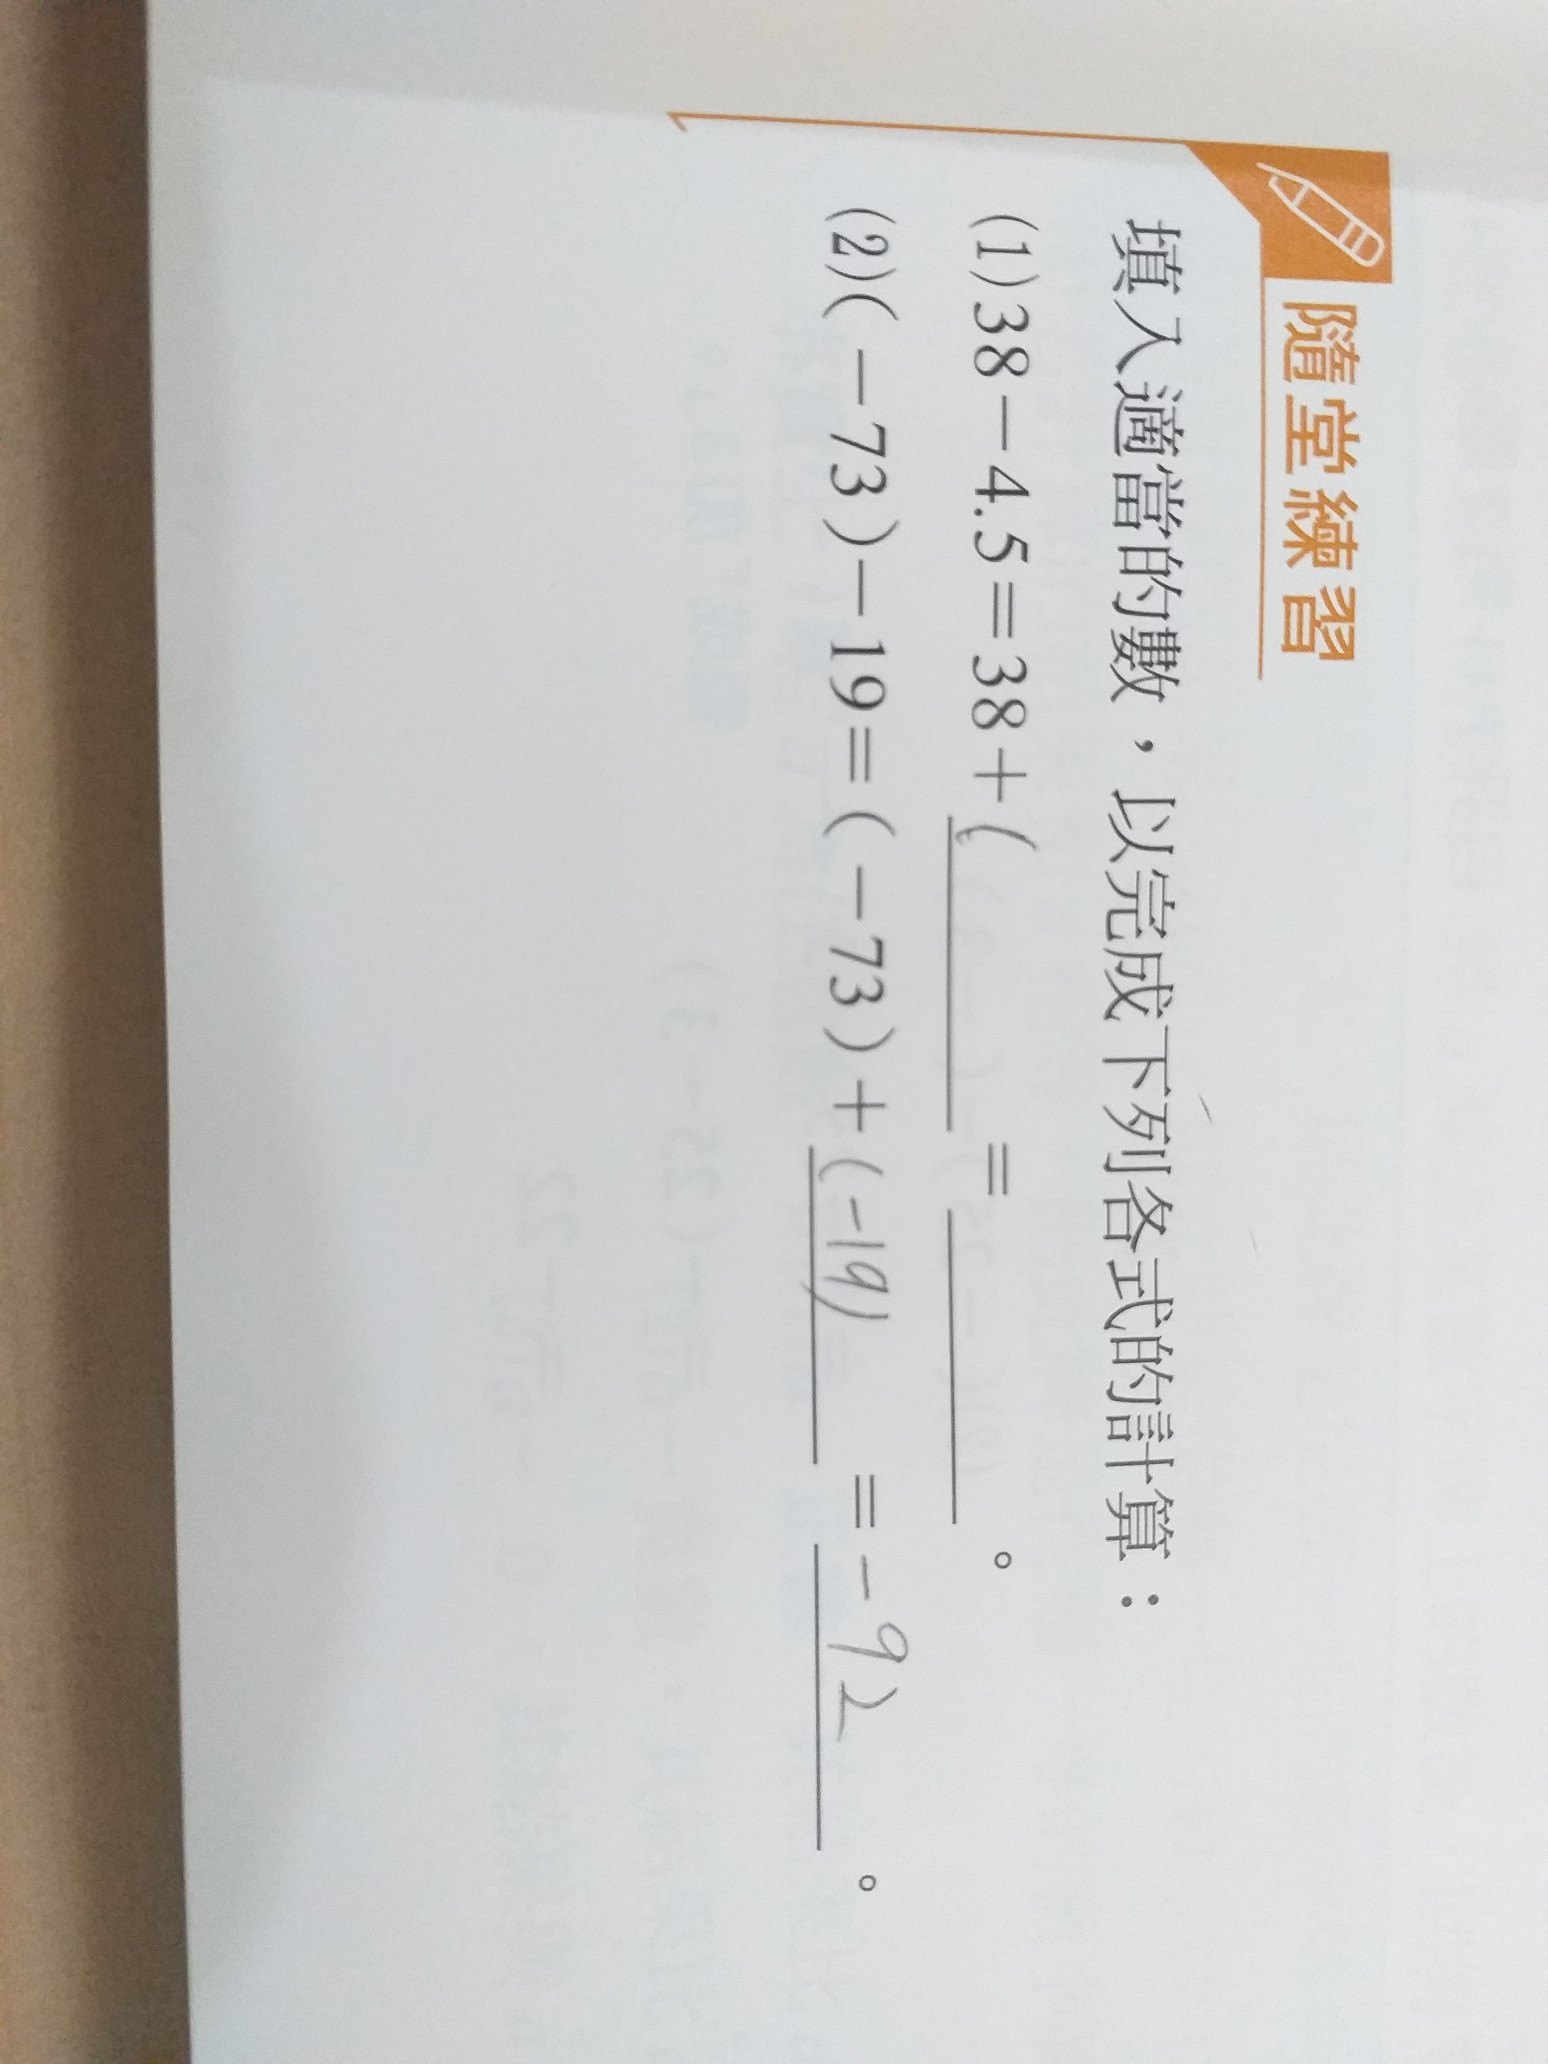 隨堂練習
填入適當的數，以完成下列各式的計算：
(1)38－4.5＝38＋( ＝ 。
(2)(－73)－19＝(－73)＋(-19) ＝ -92 。